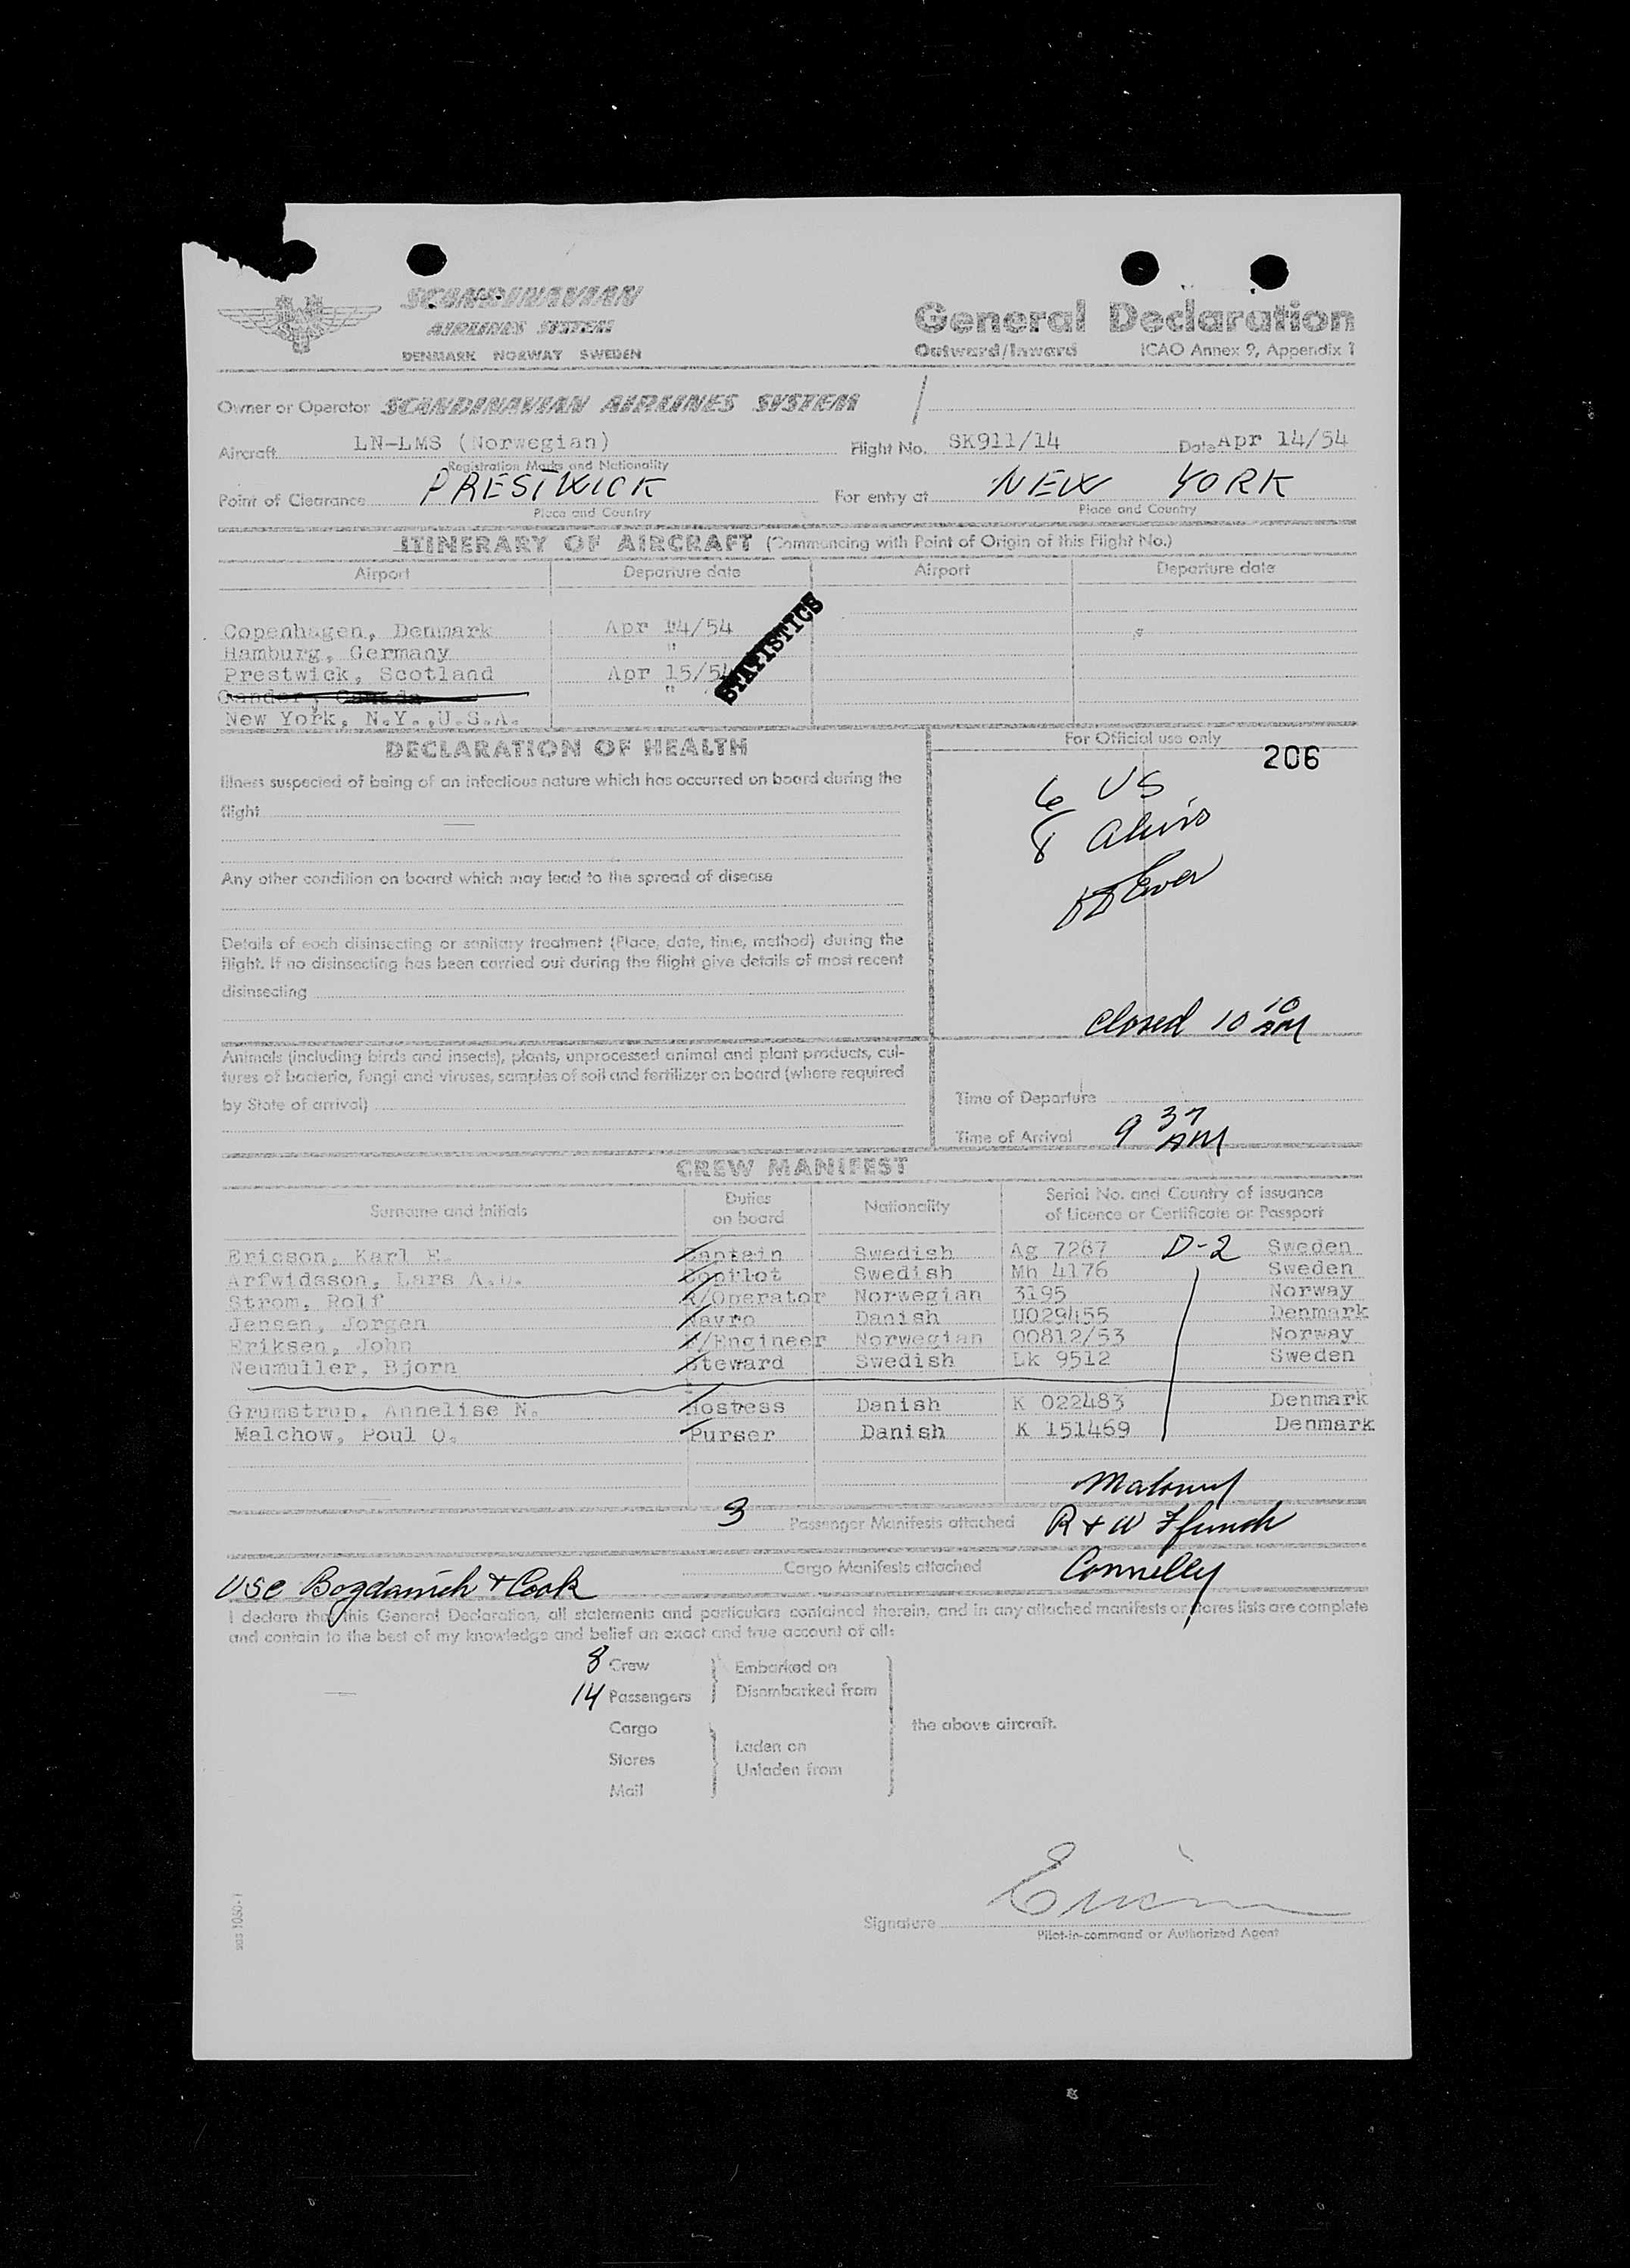 SCANDINAVIAN
AIRLINES SYSTEM
DENMARK NORWAY SWEDEN
General Declaration
Outward/Inward ICAO Annex 9, Appendix 1
Owner or Operator SCANDINAVIAN AIRLINES SYSTEM
Aircraft LN-LMS (Norwegian) Flight No. SK911/14 Date Apr 14/54
Registration Marks and Nationality
Point of Clearance PRESTWICK For entry at NEW YORK
Place and Country Place and Country
ITINERARY OF AIRCRAFT (Commencing with Point of Origin of this Flight No.)
Airport Departure date Airport Departure date
Copenhagen, Denmark Apr 14/54
Hamburg, Germany "
Prestwick, Scotland Apr 15/54
Gander, Canada "
New York, N.Y.,U.S.A.
STATISTICS
DECLARATION OF HEALTH
Illness suspected of being of an infectious nature which has occurred on board during the
flight
Any other condition on board which may lead to the spread of disease
Details of each disinsecting or sanitary treatment (Place, date, time, method) during the
flight. If no disinsecting has been carried out during the flight give details of most recent
disinsecting
Animals (including birds and insects), plants, unprocessed animal and plant products, cul-
tures of bacteria, fungi and viruses, samples of soil and fertilizer on board (where required
by State of arrival)
For Official use only
206
6 US
8
Closed 10 10 AM
Time of Departure
Time of Arrival 9 37 AM
CREW MANIFEST
Surname and Initials Duties on board Nationality Serial No. and Country of issuance of Licence or Certificate or Passport
Ericson, Karl E. Captain Swedish Ag 7287 D-2 Sweden
Arfwidsson, Lars A.O. Copilot Swedish Mh 4176 Sweden
Strom, Rolf R/Operator Norwegian 3195 Norway
Jensen, Jorgen Navro Danish U029455 Denmark
Eriksen, John F/Engineer Norwegian 00812/53 Norway
Neumuller, Bjorn Steward Swedish Lk 9512 Sweden
Grumstrup, Annelise N. Hostess Danish K 022483 Denmark
Malchow, Poul O. Purser Danish K 151469 Denmark
3 Passenger Manifests attached R + W
Cargo Manifests attached Connelley
USC Bogdanich + Cook
I declare that this General Declaration, all statements and particulars contained therein, and in any attached manifests or stores lists are complete
and contain to the best of my knowledge and belief an exact and true account of all:
8 Crew Embarked on
14 Passengers Disembarked from
Cargo the above aircraft.
Stores Laden on
Unladen from
Mail
Signature
Pilot-in-command or Authorized Agent
SAS 1050-1